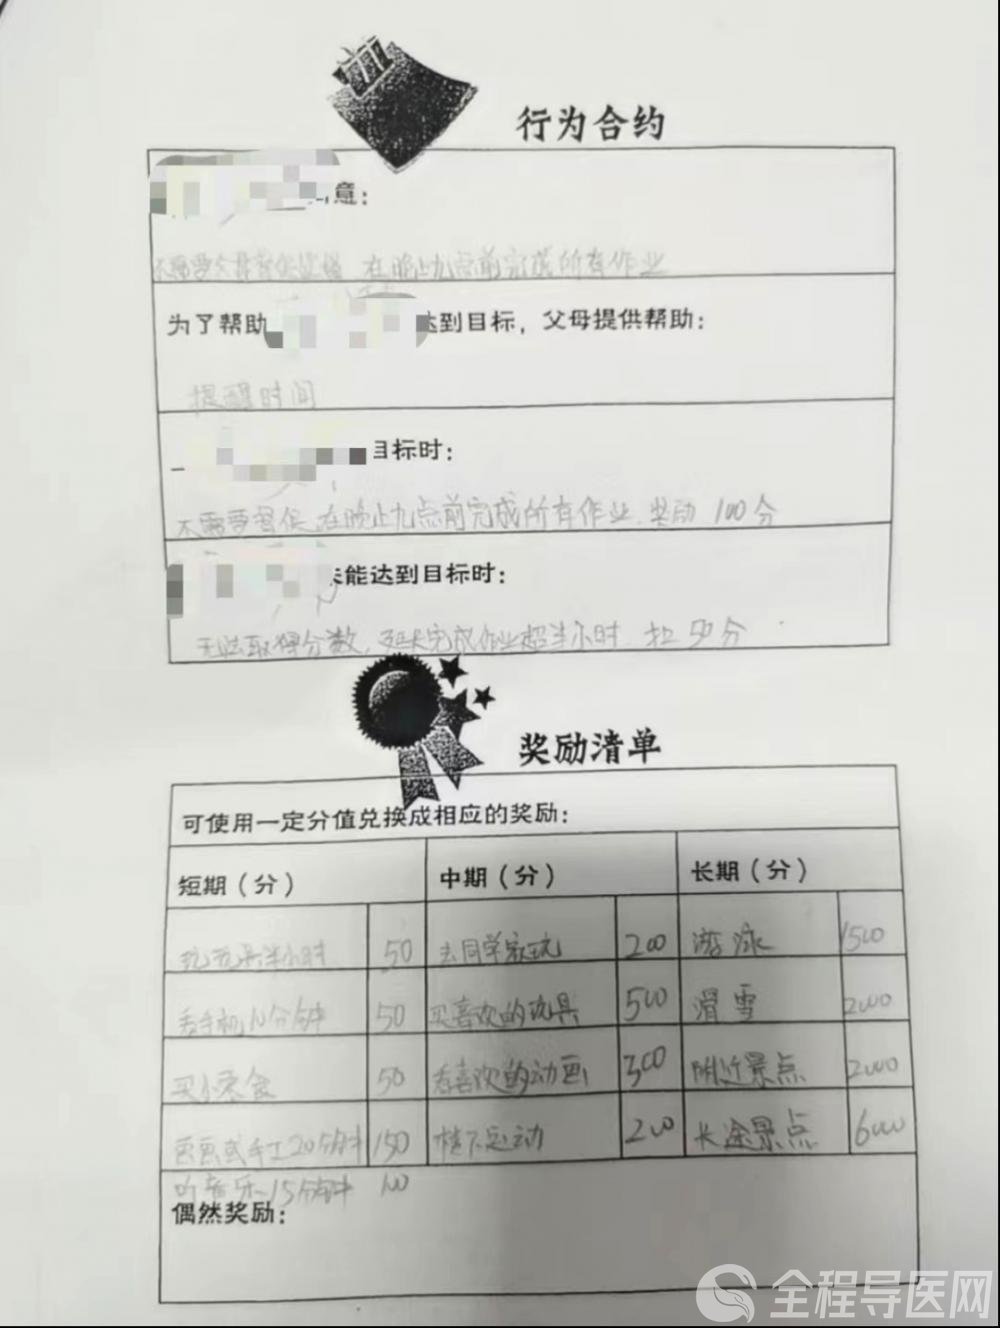 行为合约
意：
不需要 在晚上九点前完成所有作业
为了帮助 达到目标，父母提供帮助：
提醒时间
目标时：
不需要督促 在晚上九点前完成所有作业 奖励 100分
未能达到目标时：
无法取得分数，延长完成作业超半小时 扣50分
奖励清单
可使用一定分值兑换成相应的奖励：
短期（分） 中期（分） 长期（分）
玩玩具半小时 50 去同学家玩 200 游泳 1500
看手机10分钟 50 买喜欢的玩具 500 滑雪 2000
买小零食 50 看喜欢的动画 300 附近景点 2000
画画或手工20分钟 150 楼下运动 200 长途景点 6000
听音乐15分钟 100
偶然奖励：
全程导医网